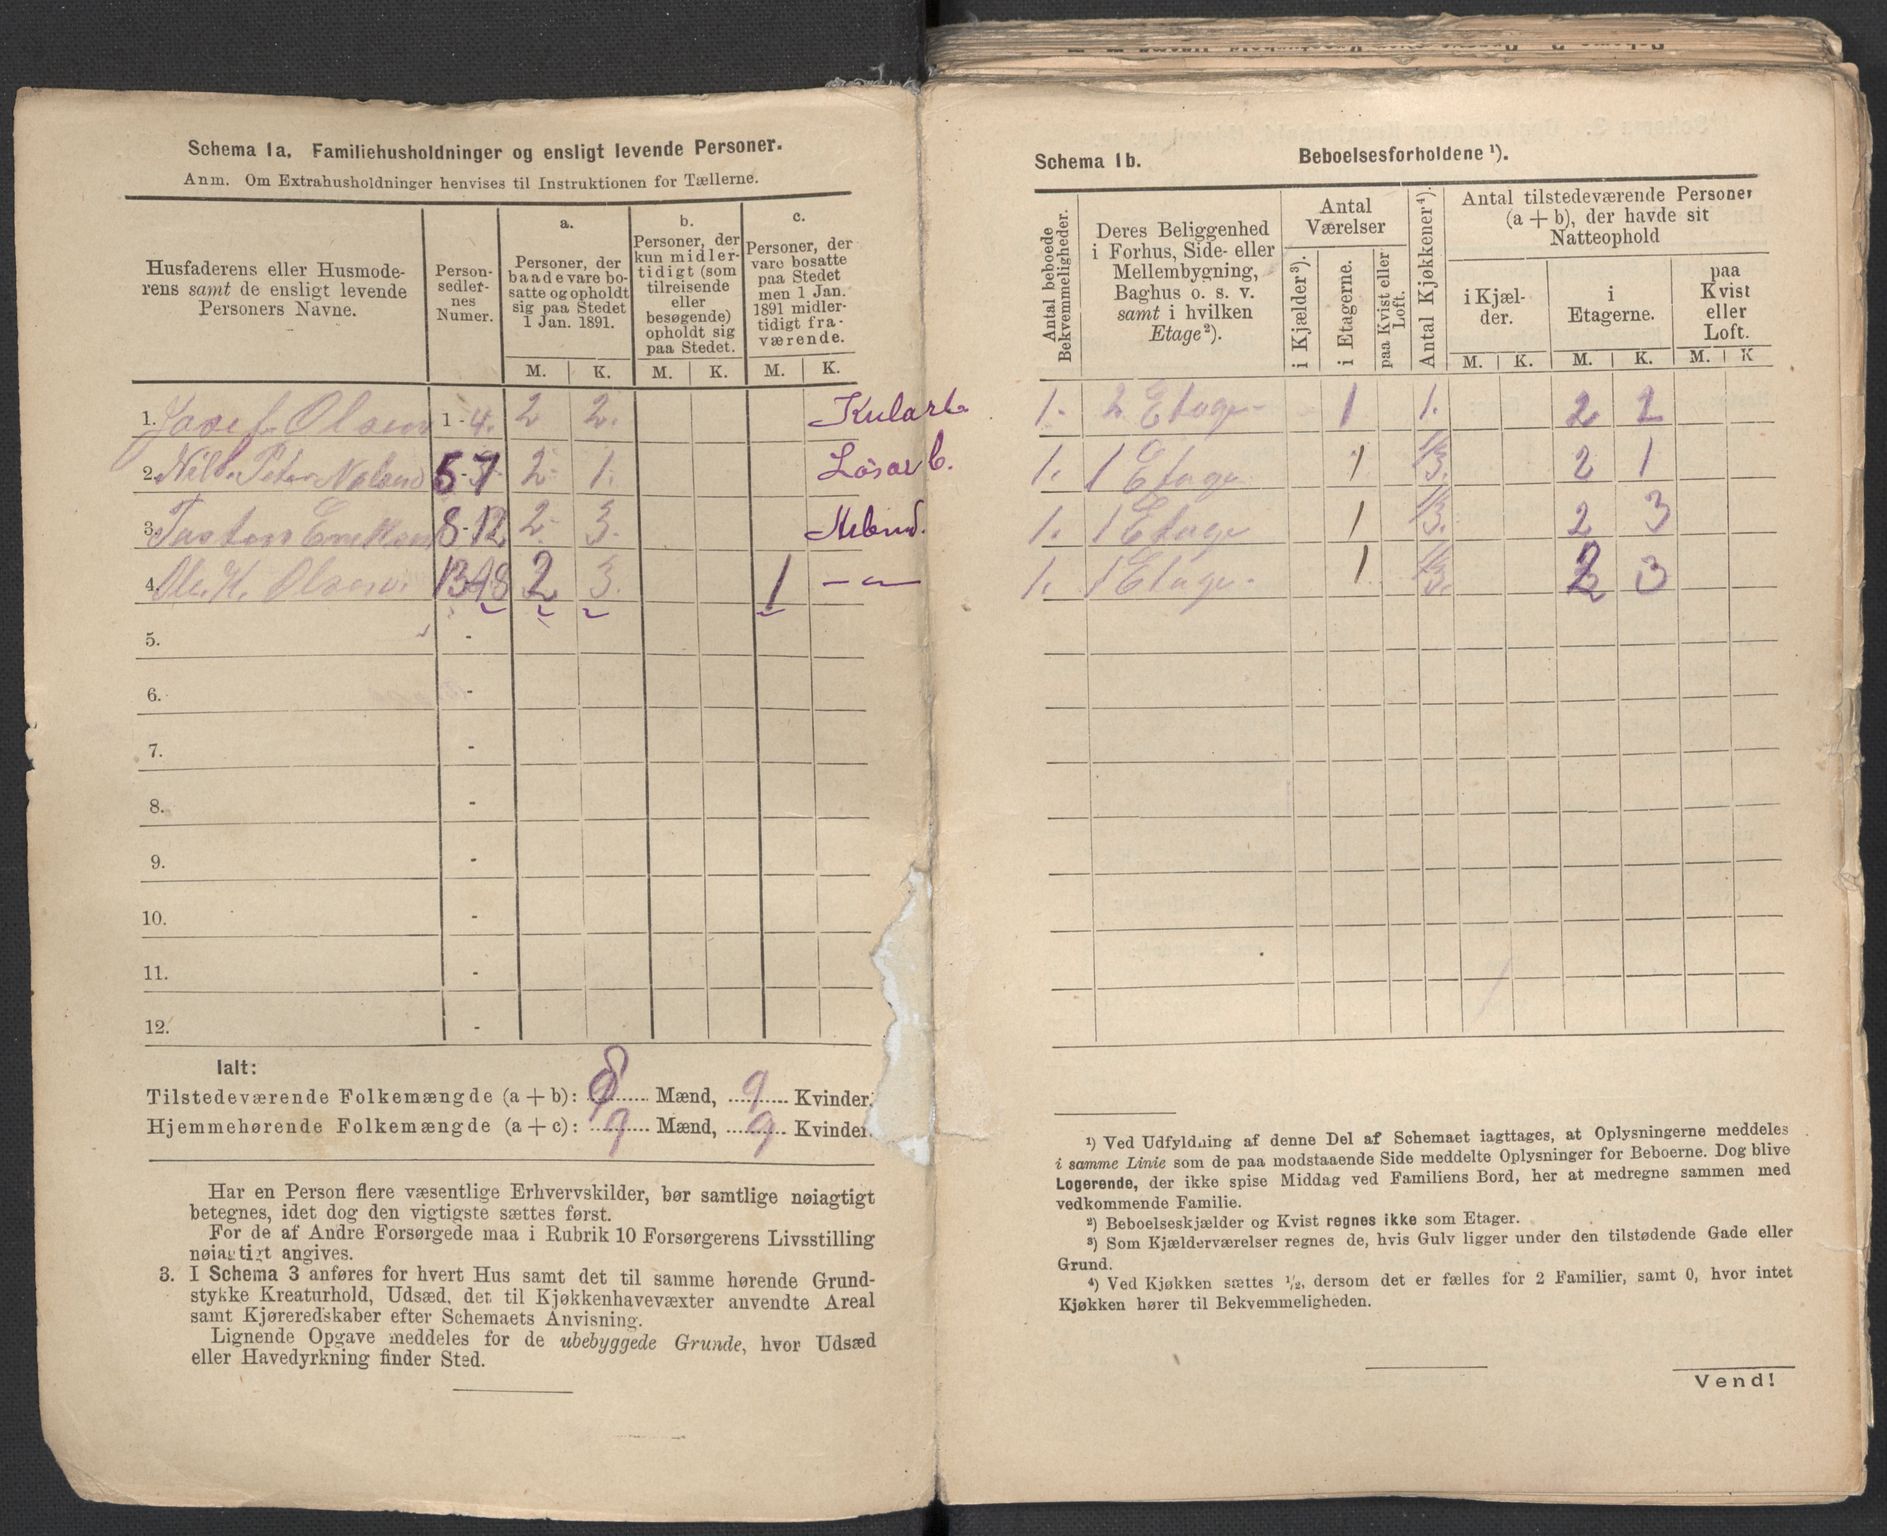 Schema 1a. Familiehusholdninger og ensligt levende Personer.
Anm. Om Extrahusholdninger henvises til Instruktionen for Tællerne.
Husfaderens eller Husmode-
rens samt de ensligt levende
Personers Navne.
Person-
sedler-
nes
Numer.
a.
Personer, der
baade vare bo-
satte og opholdt
sig paa Stedet
1 Jan. 1891.
b.
Personer, der
kun midler-
tidigt (som
tilreisende
eller
besøgende)
opholdt sig
paa Stedet.
c.
Personer, der
vare bosatte
paa Stedet
men 1 Jan.
1891 midler-
tidigt fra-
værende.
M. K. M. K. M. K.
1. Josef Olsen 1-4. 2 2.
2. Nils Peter 5-7 2- 1. Løsarb.
3. 8-12 2- 3.
4. Ole H. Olsen. 13-18 2 3. 1 — „ —
5. -
6. -
7. -
8. -
9. -
10. -
11. -
12. -
Ialt:
Tilstedeværende Folkemængde (a + b): 8 Mænd, 9 Kvinder.
Hjemmehørende Folkemængde (a + c): 9 Mænd, 9 Kvinder.
Har en Person flere væsentlige Erhvervskilder, bør samtlige nøiagtigt
betegnes, idet dog den vigtigste sættes først.
For de af Andre Forsørgede maa i Rubrik 10 Forsørgerens Livsstilling
nøiagtigt angives.
3. I Schema 3 anføres for hvert Hus samt det til samme hørende Grund-
stykke Kreaturhold, Udsæd, det til Kjøkkenhavevæxter anvendte Areal
samt Kjøreredskaber efter Schemaets Anvisning.
Lignende Opgave meddeles for de ubebyggede Grunde, hvor Udsæd
eller Havedyrkning finder Sted.
Schema 1b. Beboelsesforholdene ¹).
Antal beboede
Bekvemmeligheder.
Deres Beliggenhed
i Forhus, Side- eller
Mellembygning,
Baghus o. s. v.
samt i hvilken
Etage²).
Antal
Værelser
i Kjælder³).
i Etagerne.
paa Kvist eller
Loft.
Antal Kjøkkener⁴).
Antal tilstedeværende Personer
(a + b), der havde sit
Natteophold
i Kjæl-
der.
i
Etagerne.
paa
Kvist
eller
Loft.
M. K. M. K. M. K
1. 2 Etage- 1 1. 2 2
1. 1 Etage 1 1/3. 2 1
1. 1 Etage 1 1/3. 2 3
1. 1 Etage- 1 1/3. 2 3
¹) Ved Udfyldning af denne Del af Schemaet iagttages, at Oplysningerne meddeles
i samme Linie som de paa modstaaende Side meddelte Oplysninger for Beboerne. Dog blive
Logerende, der ikke spise Middag ved Familiens Bord, her at medregne sammen med
vedkommende Familie.
²) Beboelseskjælder og Kvist regnes ikke som Etager.
³) Som Kjælderværelser regnes de, hvis Gulv ligger under den tilstødende Gade eller
Grund.
⁴) Ved Kjøkken sættes ½, dersom det er fælles for 2 Familier, samt 0, hvor intet
Kjøkken hører til Bekvemmeligheden.
Vend!